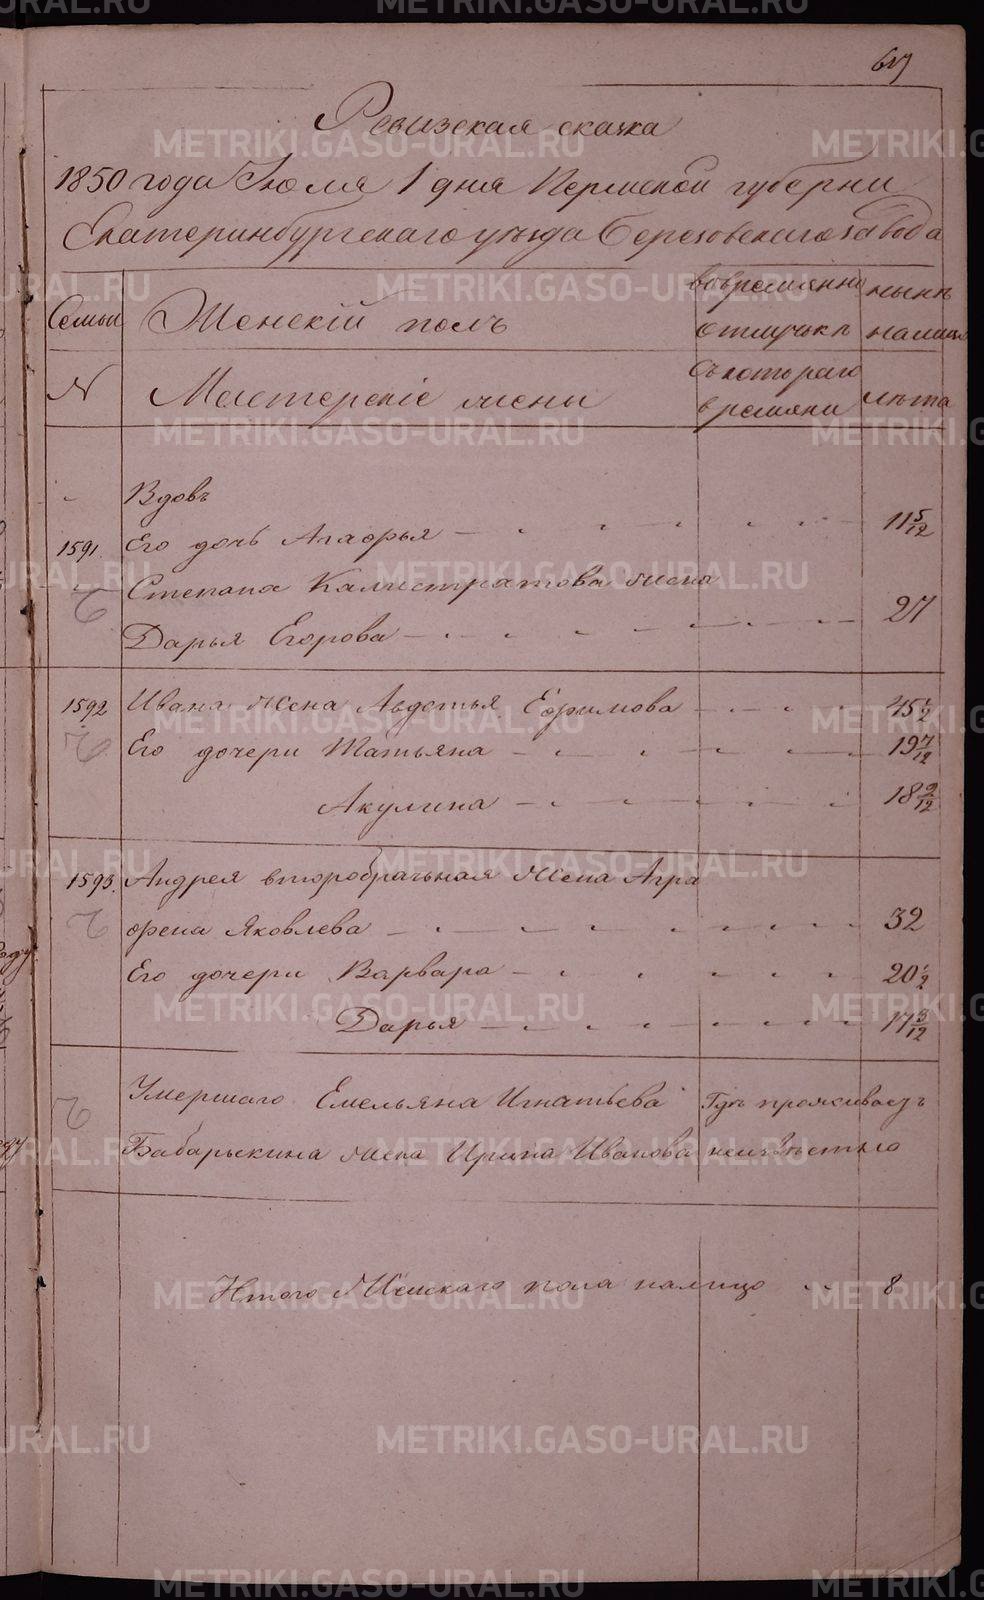 Ревизская сказка
1850 года Июля 1 дня Пермской губернии
Екатеринбургскаго уезда Березовскаго завода
Семьи Женскій полъ вовремянно отлучьке ныне налицо
N Мастерскіе жены съкотораго времяни лета
Вдовъ
1591. Его дочь Агафья 11 5/12
Степана Калистратова жена
Дарья Егорова 27
1592 Ивана жена Авдотья Ефимова 45 1/2
Его дочери Татьяна 19 7/12
Акулина 18 9/12
1593. Андрея второбрачьная жена Агра
фена Яковлева 32
Его дочери Варвара 20 1/2
Дарья 17 3/12
Умершаго Емельяна Игнатьева Где проживаетъ
Бабарыкина жена Ирина Иванова неизвестно
Итого Женскаго пола налицо 8
METRIKI.GASO-URAL.RU